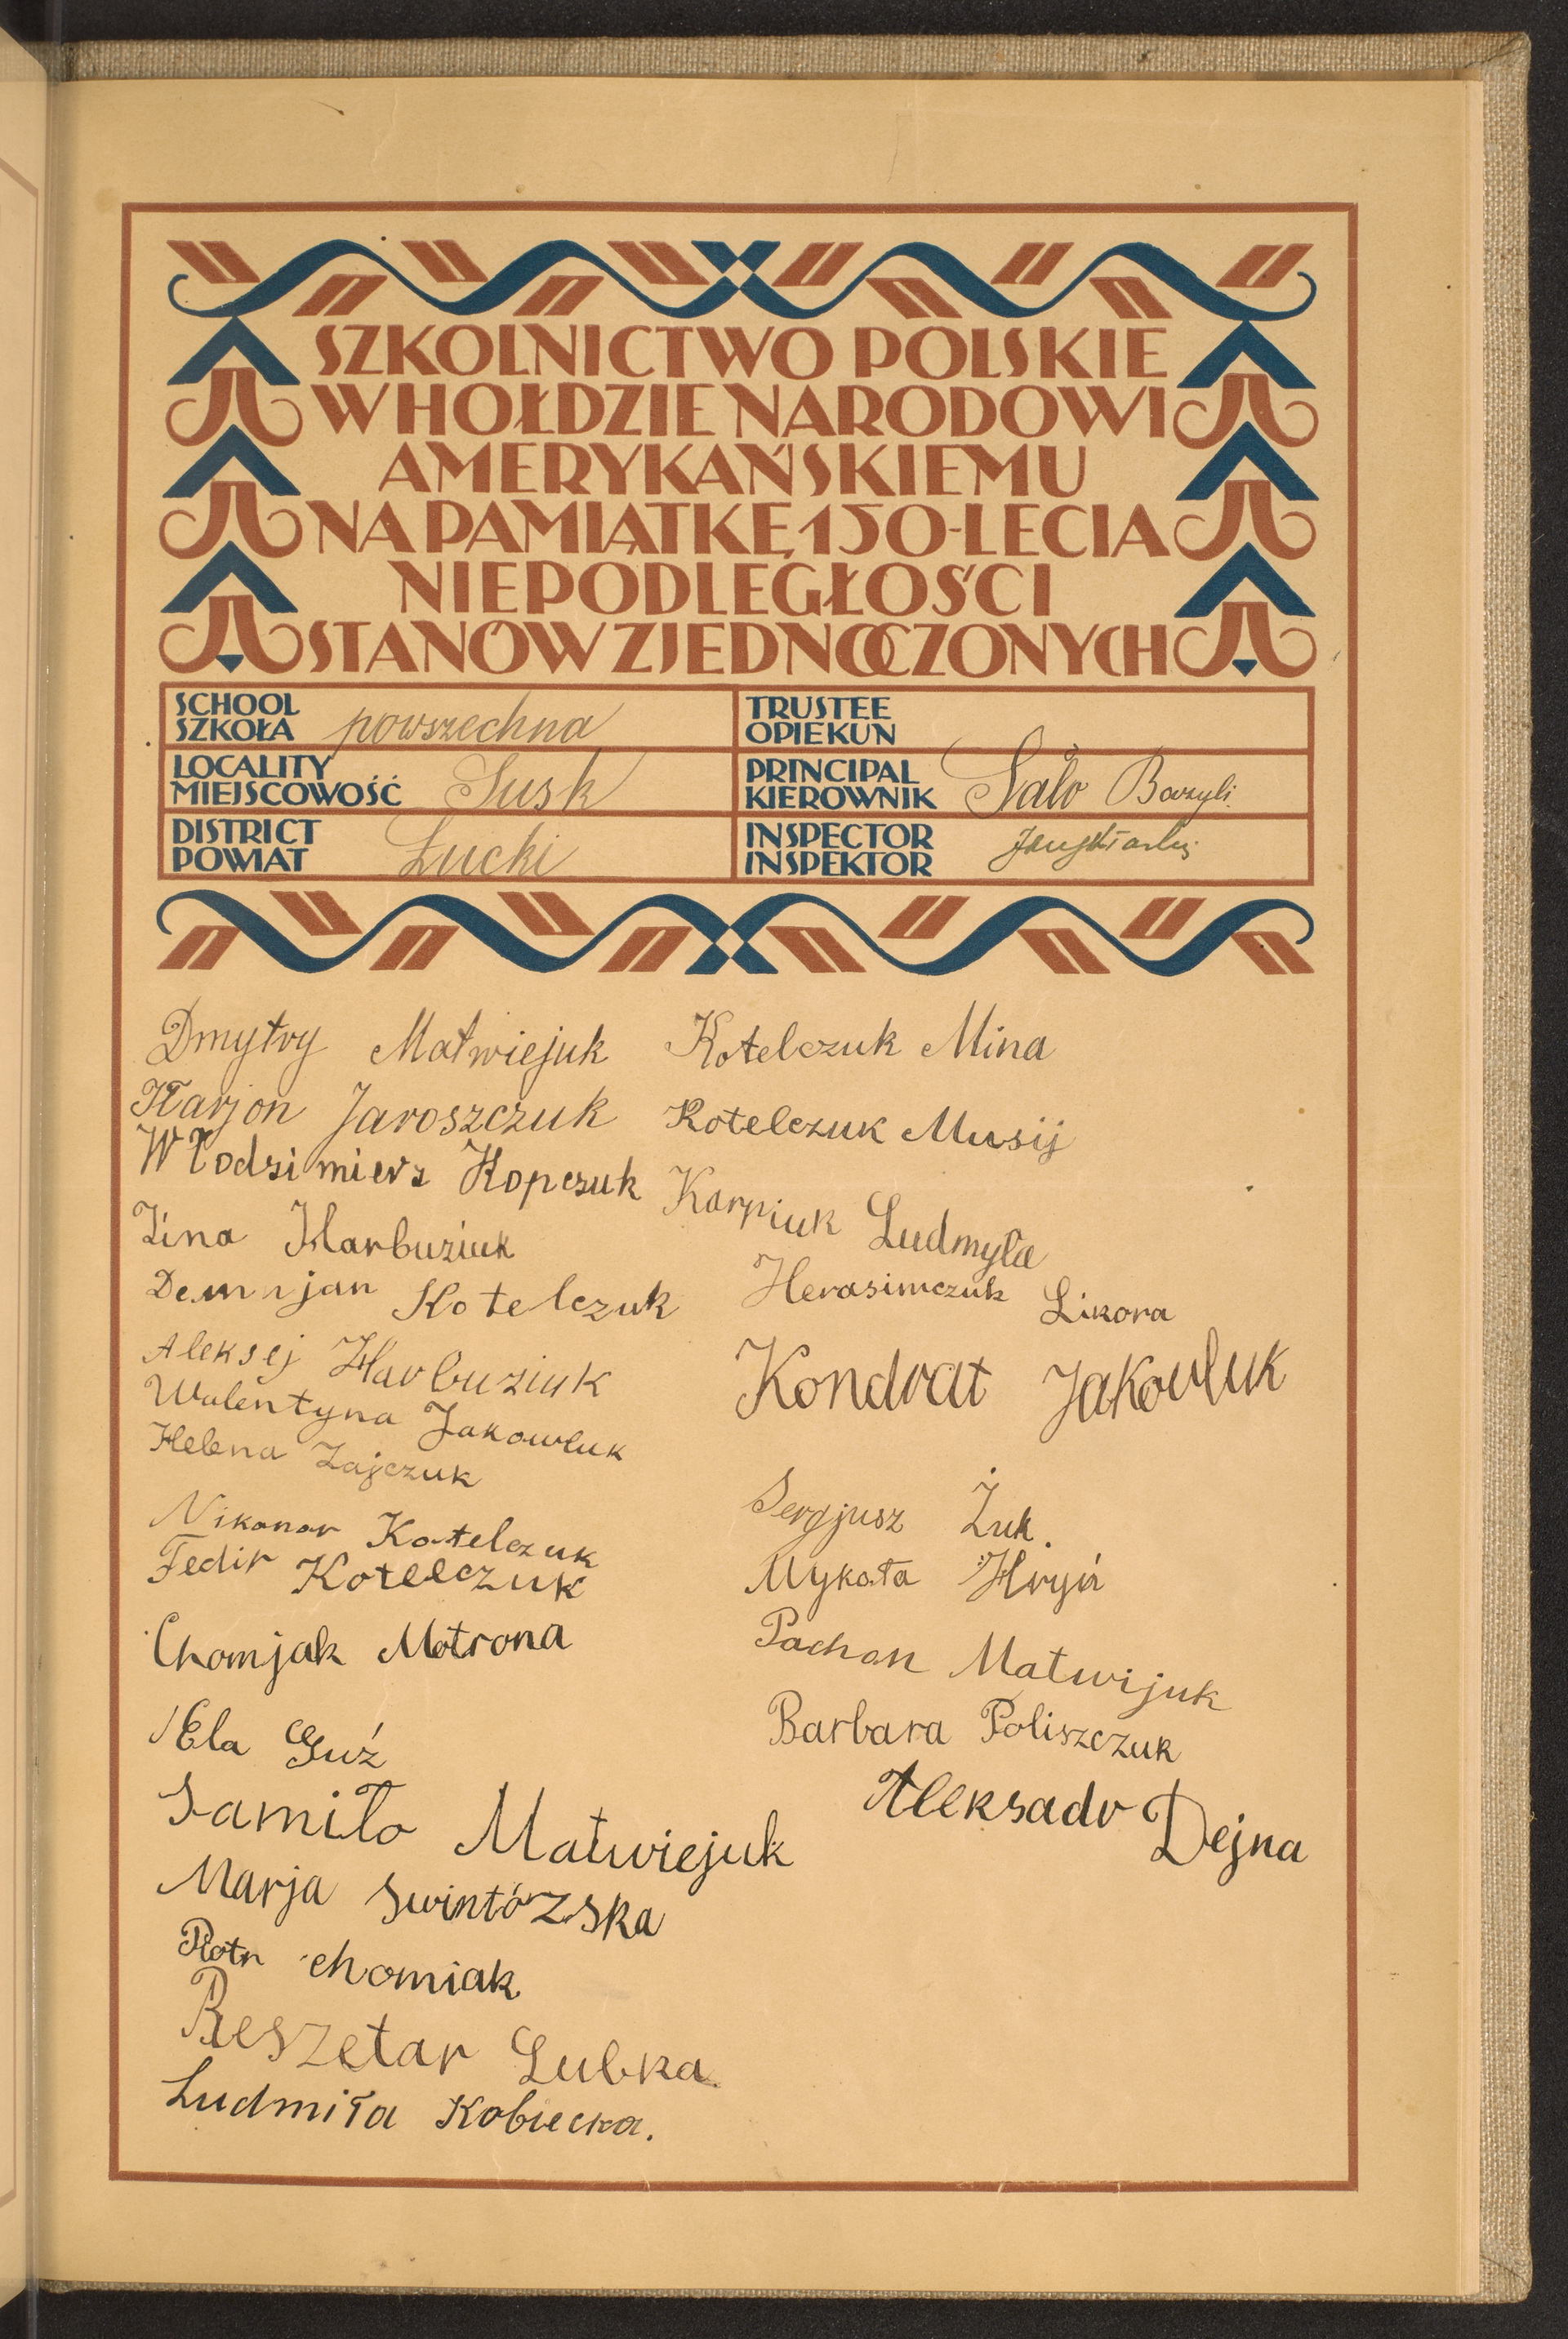 SZKOLNICTWO POLSKIE
W HOŁDZIE NARODOWI
AMERYKAŃSKIEMU
NA PAMIĄTKĘ 150-LECIA
NIEPODLEGŁOŚCI
STANÓW ZJEDNOCZONYCH
SCHOOL
SZKOŁA powszechna
TRUSTEE
OPIEKUN
LOCALITY
MIEJSCOWOŚĆ Susk
PRINCIPAL
KIEROWNIK Sało Bazyli
DISTRICT
POWIAT Łucki
INSPECTOR
INSPEKTOR
Dmytry Matwiejuk
Harjon Jaroszczuk
Włodzimierz Kopczuk
Zina Harbuziuk
Demnjan Kotelczuk
Aleksej Harbuziuk
Walentyna Jakowluk
Helena Zajczuk
Nikanor Kotelczuk
Fedir Kotelczuk
Chomjak Motrona
Ela Guź
Samiło Matwiejuk
Marja Swintórzska
Piotr chomiak
Reszetar Lubka
Ludmiła Kobiecka.
Kotelczuk Mina
Kotelczuk Musij
Karpiuk Ludmyła
Herasimczuk Likora
Kondrat Jakowluk
Sergjusz Żuk.
Mykoła Hryń
Pachon Matwijuk
Barbara Poliszczuk
Aleksadr Dejna